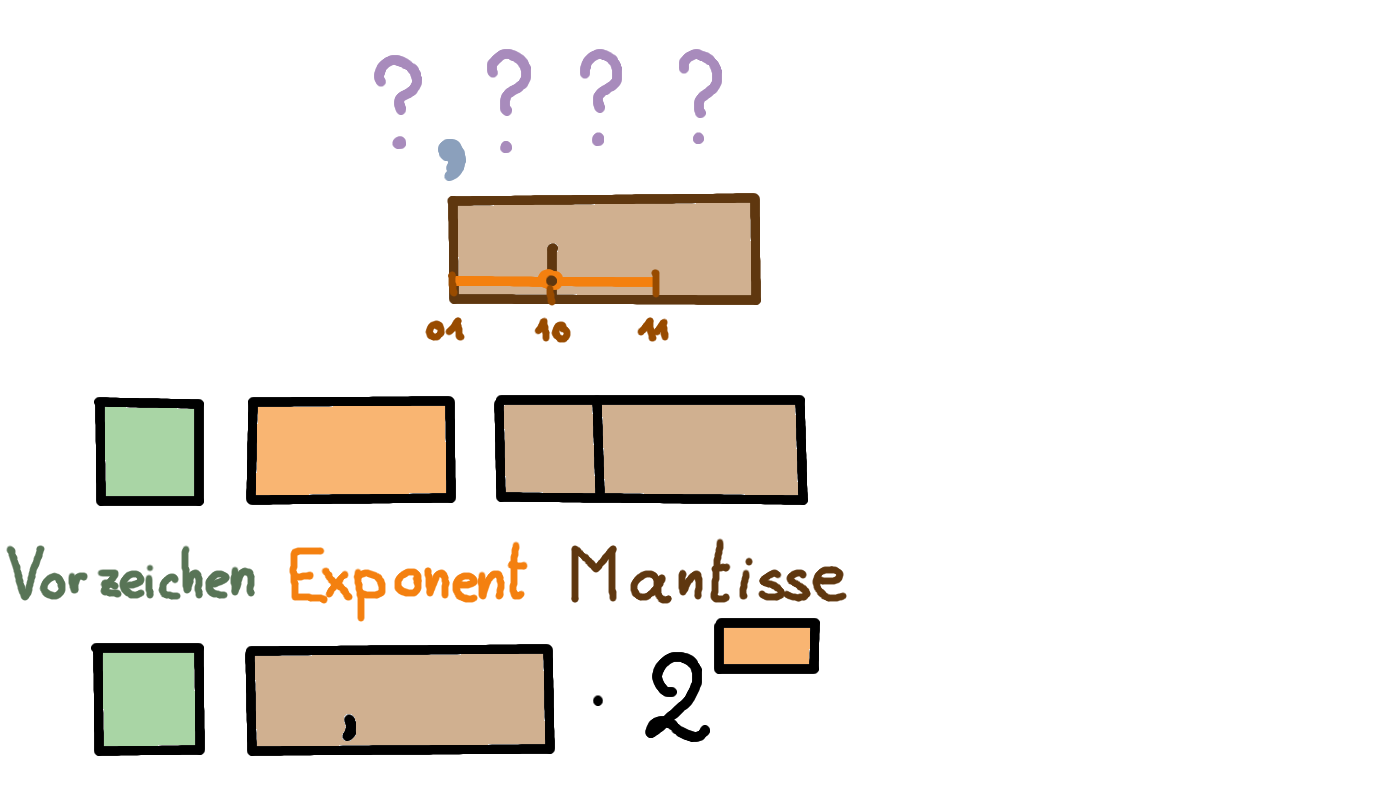 ? , ? ? ?
01 10 11
Vorzeichen Exponent Mantisse
, · 2